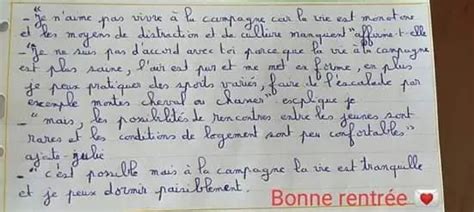 - "je n'aime pas vivre à la campagne car la vie est monotone
et les moyens de distraction et de culture manquent" affirme-t-elle
- "je ne suis pas d'accord avec toi parce que la vie à la campagne
est plus saine, l'air est pur et me met en forme, en plus
je peux pratiquer des sports variés, faire de l'escalade par
exemple montes cheval ou chasser" explique je
- "mais, les possibilités de rencontres entre les jeunes sont
rares et les conditions de logement sont peu confortables"
ajoute-julie
- "c'est possible mais à la campagne la vie est tranquille
et je peux dormir paisiblement.
Bonne rentrée